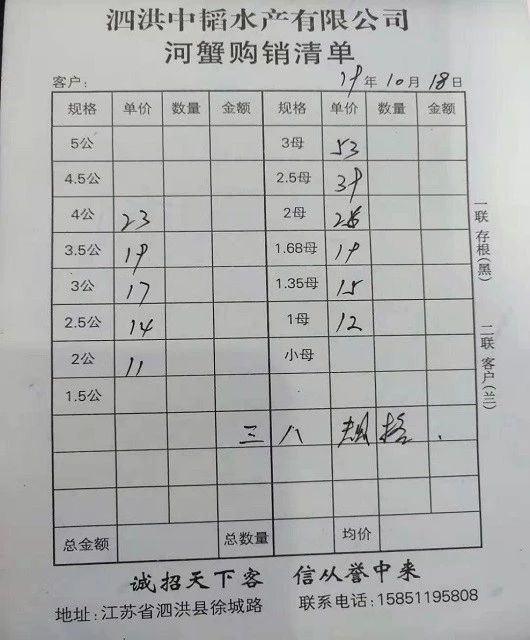 泗洪中韬水产有限公司
河蟹购销清单
客户: 19年10月18日
规格 单价 数量 金额 规格 单价 数量 金额
5公 3母 53
4.5公 2.5母 39
4公 23 2母 26
3.5公 19 1.68母 19
3公 17 1.35母 15
2.5公 14 1母 12
2公 11 小母
1.5公
三八 规格.
总金额 总数量 均价
一联 存根(黑)
二联 客户(兰)
诚招天下客 信从誉中来
地址:江苏省泗洪县徐城路 联系电话:15851195808